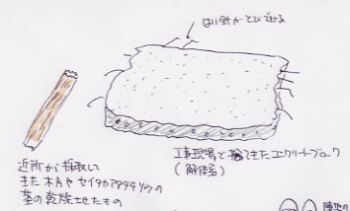 はり金がとびでてる
工事現場で捨てきたコンクリートブロック
(解体前)
近所から採取して
きた木片やセイタカアワダチソウの
茎の乾燥したもの